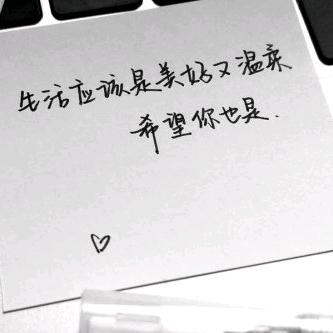 生活应该是美好又温柔
希望你也是.